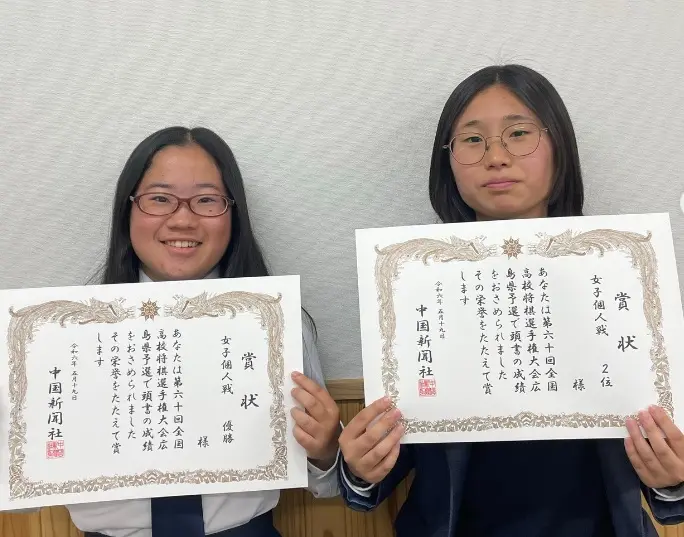 賞状
女子個人戦　優勝
様
あなたは第六十回全国
高校将棋選手権大会広
島県予選で頭書の成績
をおさめられました
その栄誉をたたえて賞
します
令和六年五月十九日
中国新聞社
賞状
女子個人戦　2位
様
あなたは第六十回全国
高校将棋選手権大会広
島県予選で頭書の成績
をおさめられました
その栄誉をたたえて賞
します
令和六年五月十九日
中国新聞社